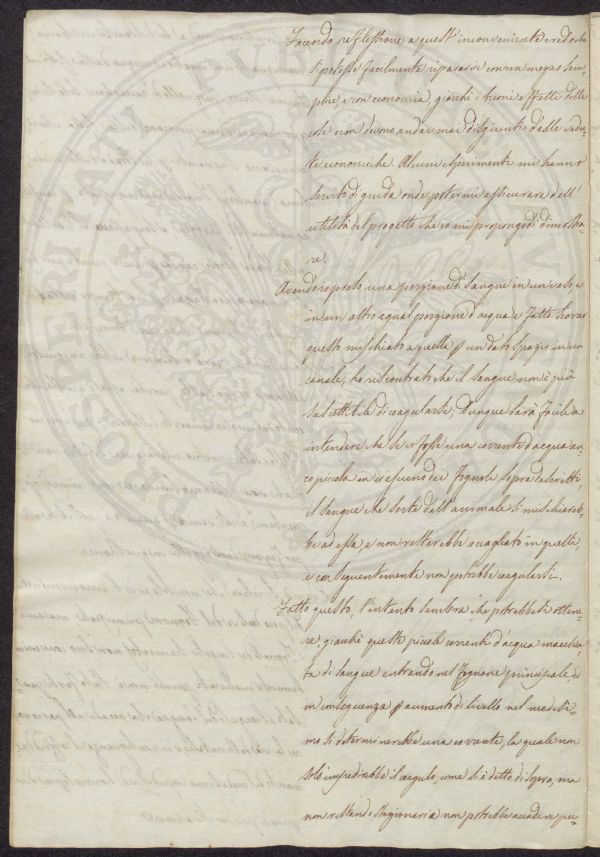 Facendo reflessione a quest'inconveniente credo che
si potesse facilmente ripararvi con un mezzo sem-
plice, e con economia, giacchè i buoni effetti delle
cose non devono andar mai disgiunti dalle vedu-
te economiche. Alcuni esperimenti mi hanno
servito di guida onde potermi assicurare dell'
utilità del progetto che io mi propongo di dimostra-
re.
Avendo io preso una porzione di sangue in un vaso e
in un altro egual porzione d'acqua e fatto scorrer
questo mischiato a quella p un dato spazio in un
canale, ho riscontrato che il sangue non è più
suscettibile di coagularsi; Dunque sarà facile a
intendere che se vi fosse una corrente d'acqua an-
co piccola in ciascuno dei fognoli sopra descritti,
il sangue che sorte dall'animale si mischiereb-
be ad essa, e non resterebbe accagliato in quelli,
e conseguentemente non potrebbe coagularsi.
Fatto questo l'intento sembra che potrebbesi ottene-
re, giacchè queste piccole correnti d'acqua macchia-
ta di sangue entrando nel fognone principale e
in conseguenza p aumento di livello nel medesi-
mo si determinerebbe una corrente, la quale non
solo impedirebbe il coagulo, come si è detto di sopra, ma
non restando stagionaria non potrebbe accadere pu-
PROSPERITATI PUBLICAE